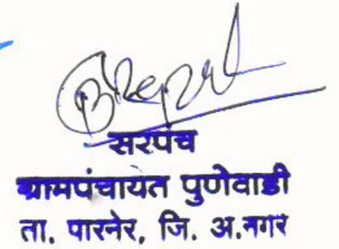 सरपंच
ग्रामपंचायत पुणेवाडी
ता. पारनेर, जि. अ.नगर